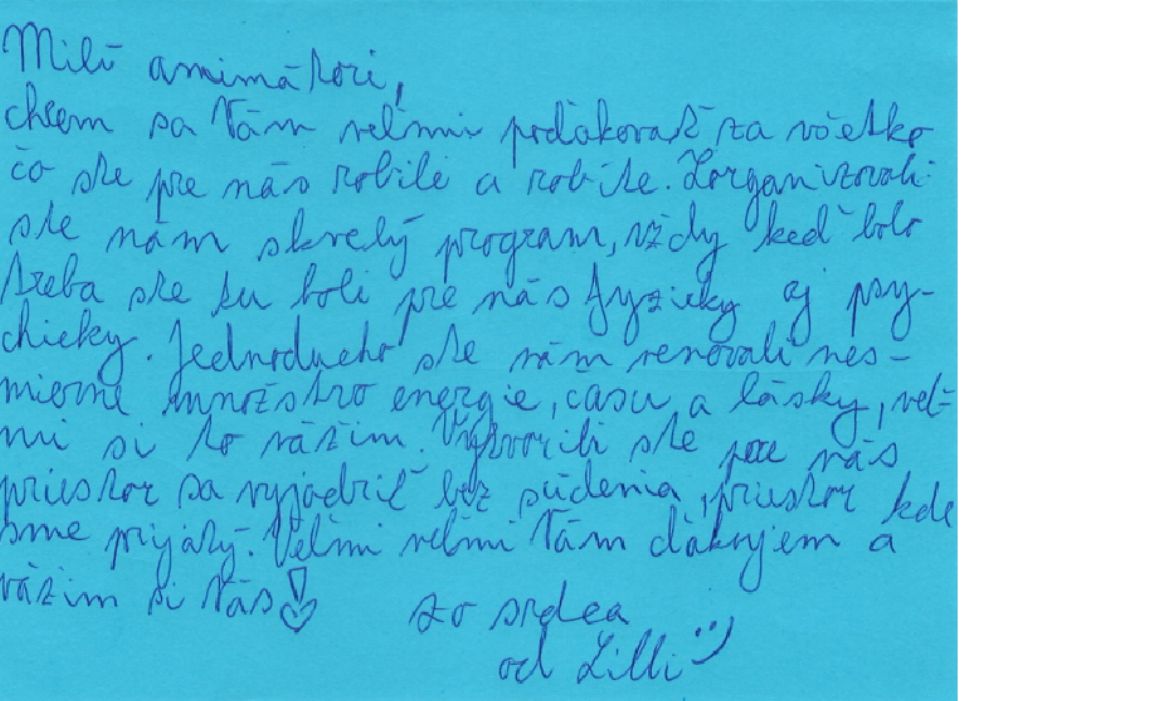 Milí animátori,
chcem sa Vám veľmi poďakovať za všetko
čo ste pre nás robili a robíte. Zorganizovali
ste nám skvelý program, vždy keď bolo
treba ste tu boli pre nás fyzicky aj psy-
chicky. Jednoducho ste nám venovali nes-
mierne množstvo energie, času a lásky, veľ-
mi si to vážim. Vytvorili ste pre nás
priestor sa vyjadriť bez súdenia, priestor kde
sme prijatý. Veľmi veľmi Vám ďakujem a
vážim si Vás!
zo srdca
od Lilli :)